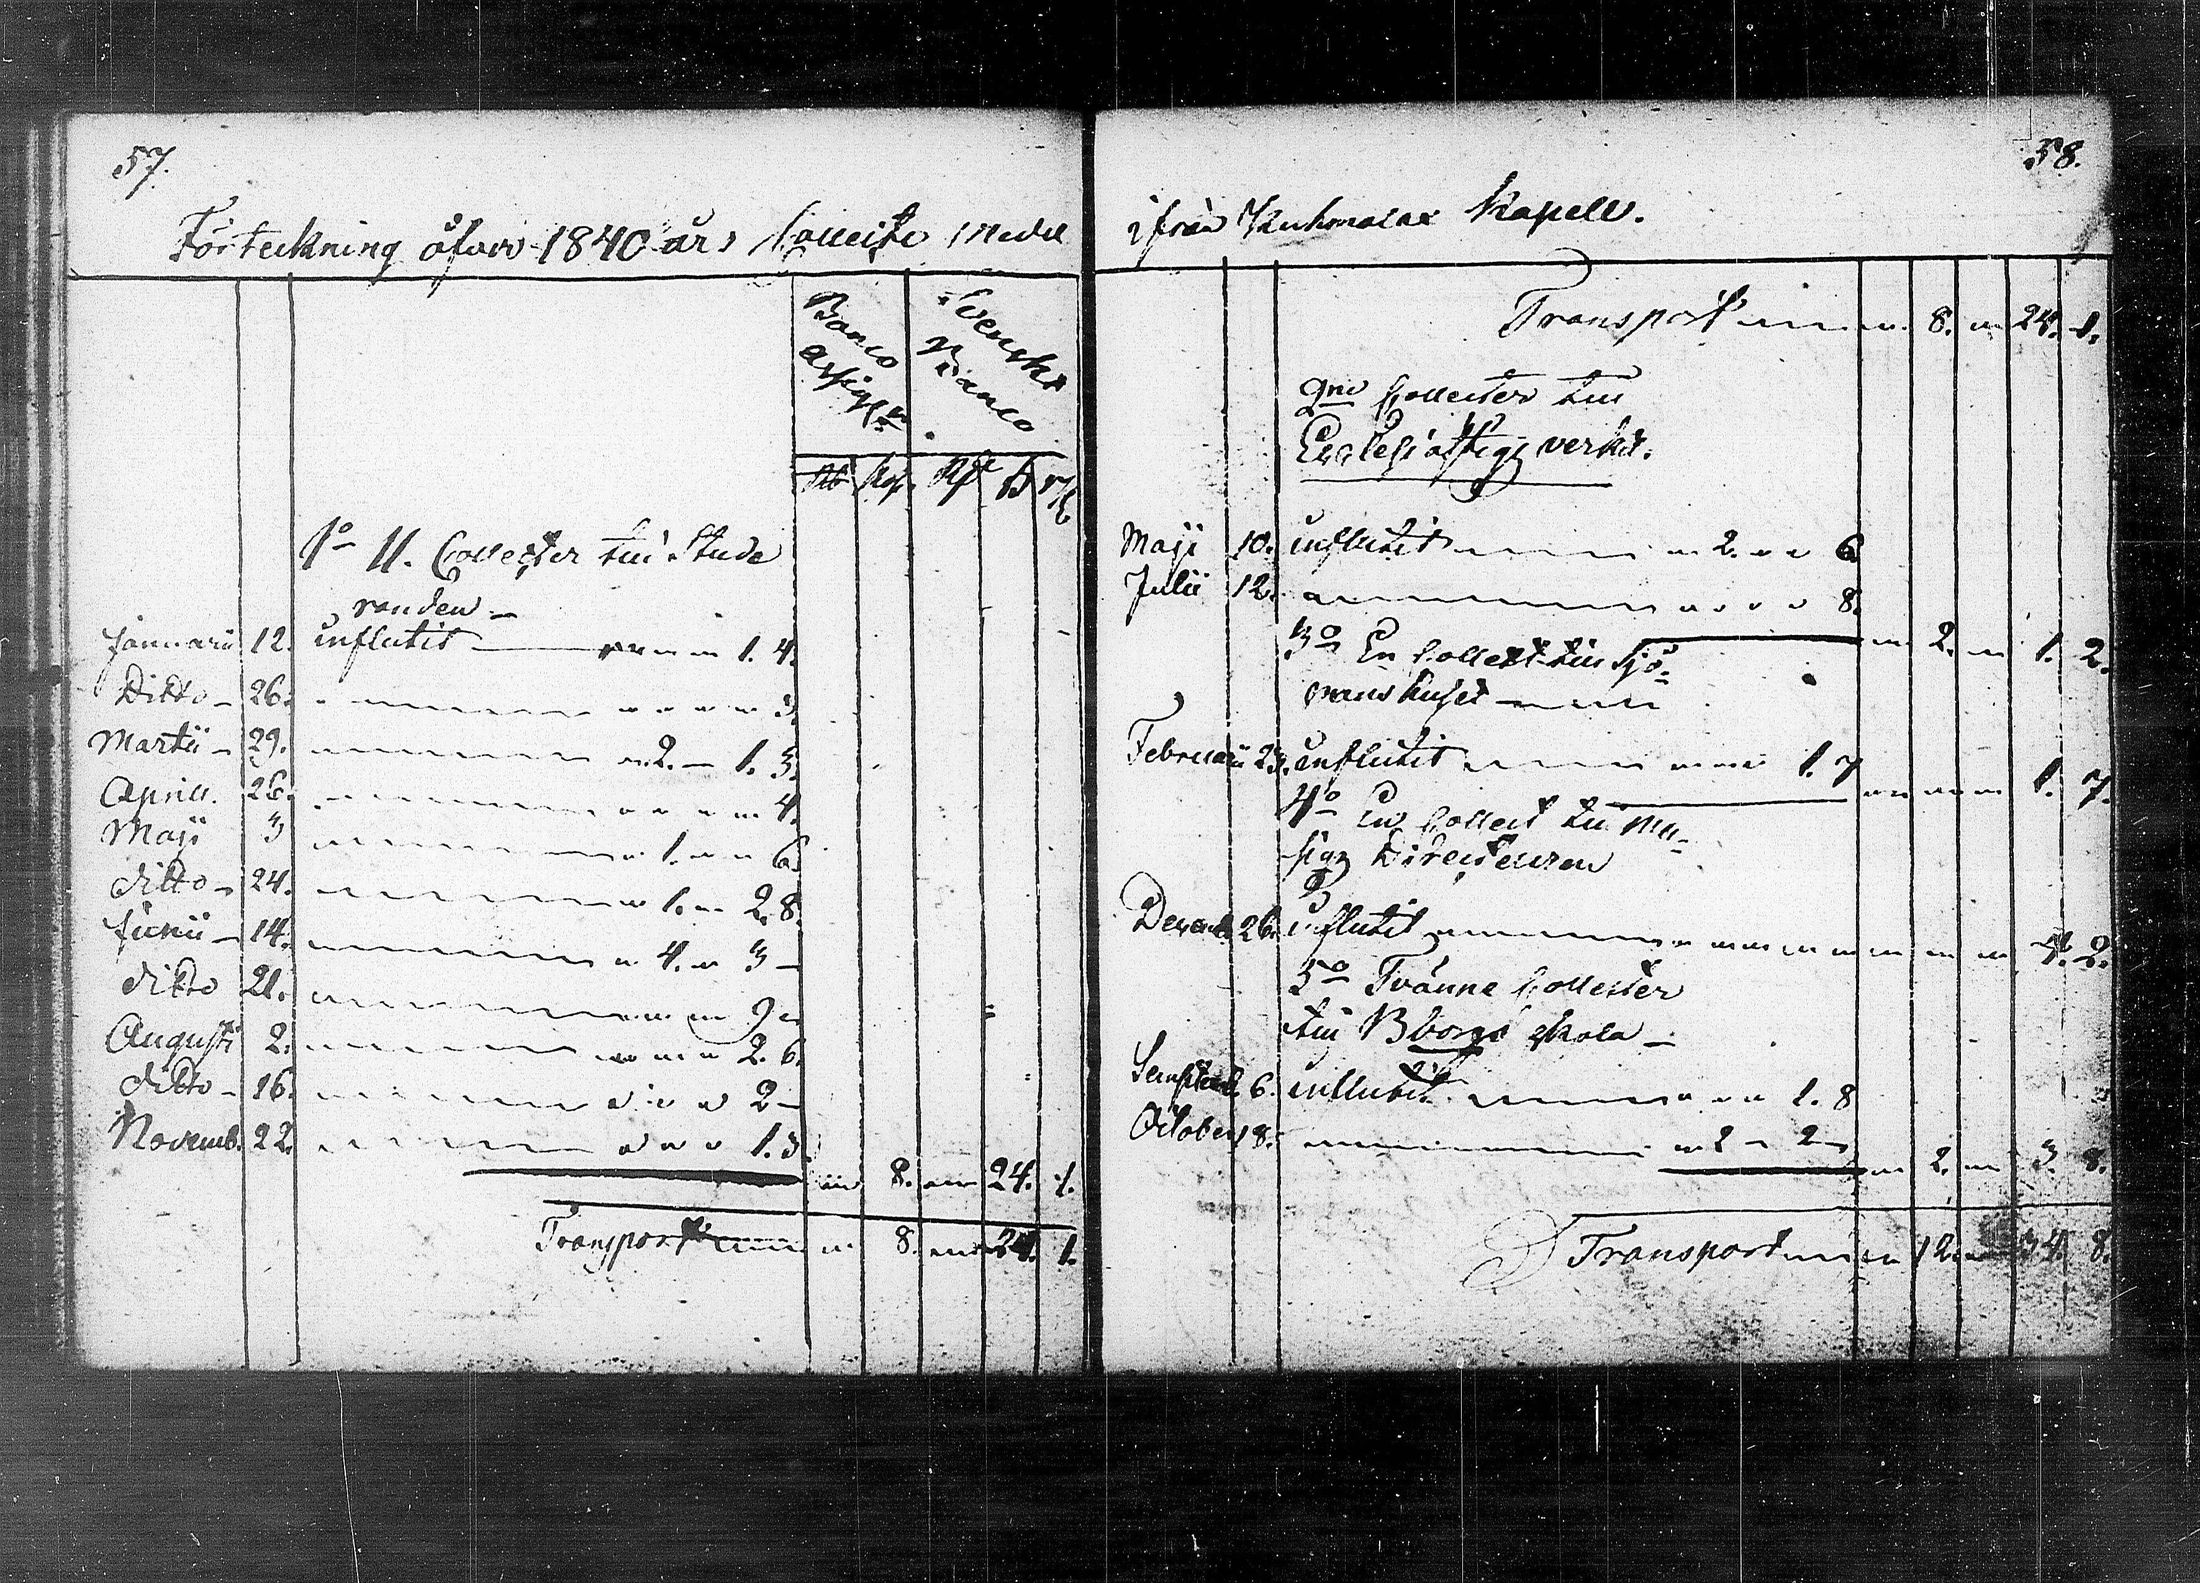 57.
Förteckning öfver 1840 års Collecte Medel
Banco Assign:r
Svenska Banco
Rb Kop. Rd ß rst
1o 11. Collecter till Stude
randen
Januarii 12. influtit 1. 4.
Ditto 26. 3.
Martii 29. 2. 1. 3.
Aprill. 26. 4.
Maji 3 1. 6.
ditto 24. 1. 2. 8.
Junii 14. 4. 3
ditto 21. 9
Augusti 2. 2. 6.
ditto 16. 2
Novemb. 22. 1. 3.
8. 24. 1.
Transport 8. 24. 1.
58.
ifrån Kuhmalax Kapell.
Transport 8. 24. 1.
2ne Collecter till
Ecclesiastiqs verket.
Maji 10. influtit 2. 6
Julii 12. 8.
2. 1. 2.
3o En Collect till Sjö-
manshuset
Februarii 23. influtit 1. 7
1. 7.
4o En Collect till Mu-
siqs Directeuren
Decemb. 26. influtit 4. 2.
5o Tvänne Collecter
till Borgå skola
Septemb. 6. influtit 1. 8
October 18. 2 2
2. 3. 8.
Transport 12. 34. 8.